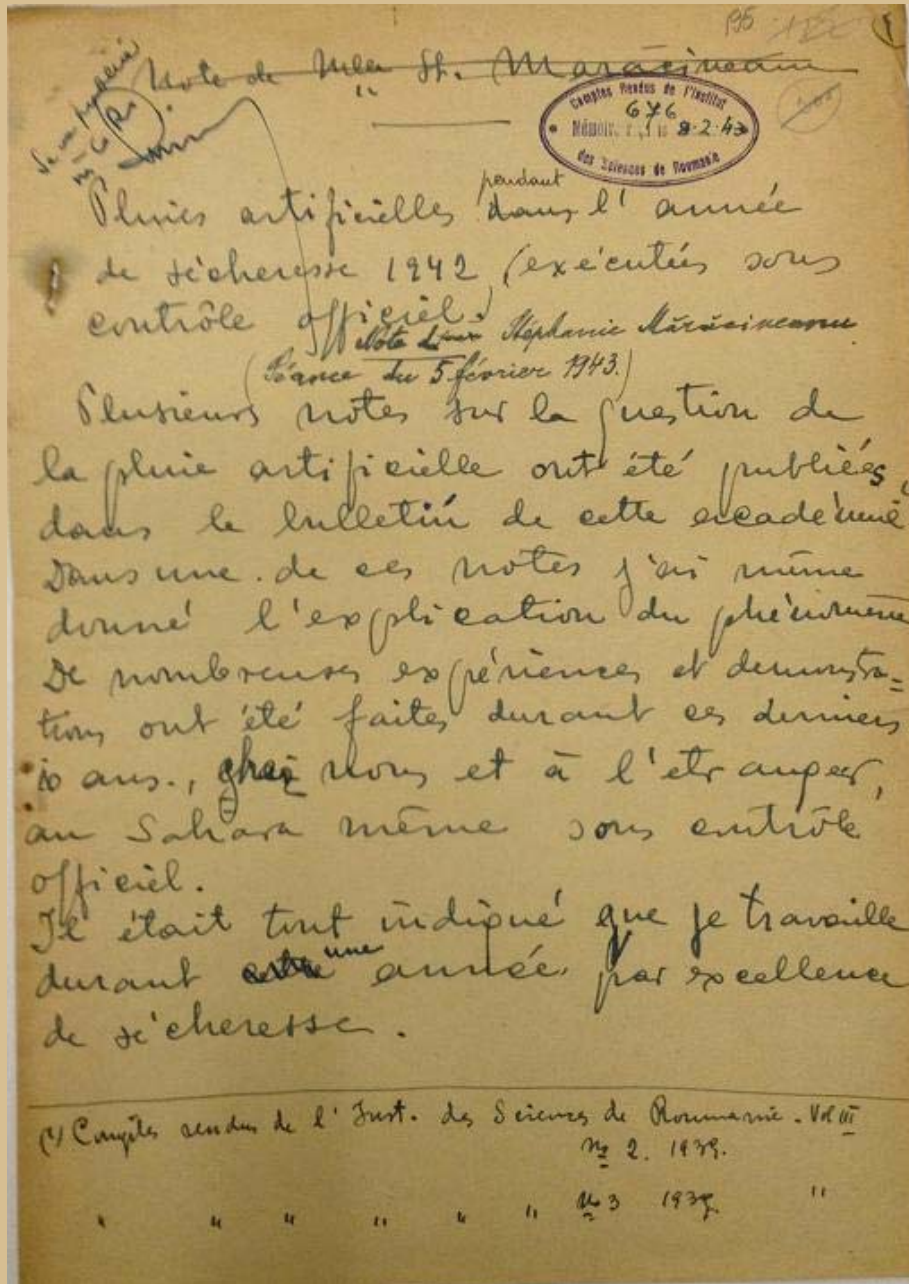 195
Note de Mlle St. Mărăcineanu
Se va publica
în C. R.
Comptes Rendus de l'Institut
676
8-2-43
des Sciences de Roumanie
pendant
Pluies artificielles dans l' année
de sécheresse 1942 (exécutées sous
contrôle officiel.)
Note de Stéphanie Mărăcineanu
(Séance du 5 février 1943.)
Plusieurs notes sur la question de
la pluie artificielle ont été publiées,
dans le bulletin de cette académie
Dans une de ces notes j'ai même
donné l'explication du phénomène
De nombreuses expériences et demonstra=
tions ont été faites durant ces derniers
10 ans., chez nous et à l'etranger,
au Sahara même sous contrôle
officiel.
Il était tout indiqué que je travaille
durant cette une année par excellence
de sécheresse.
(1) Comptes rendus de l' Inst. des Sciences de Roumanie. Vol III
No 2. 1939.
" " " " " " No 3 1939 "